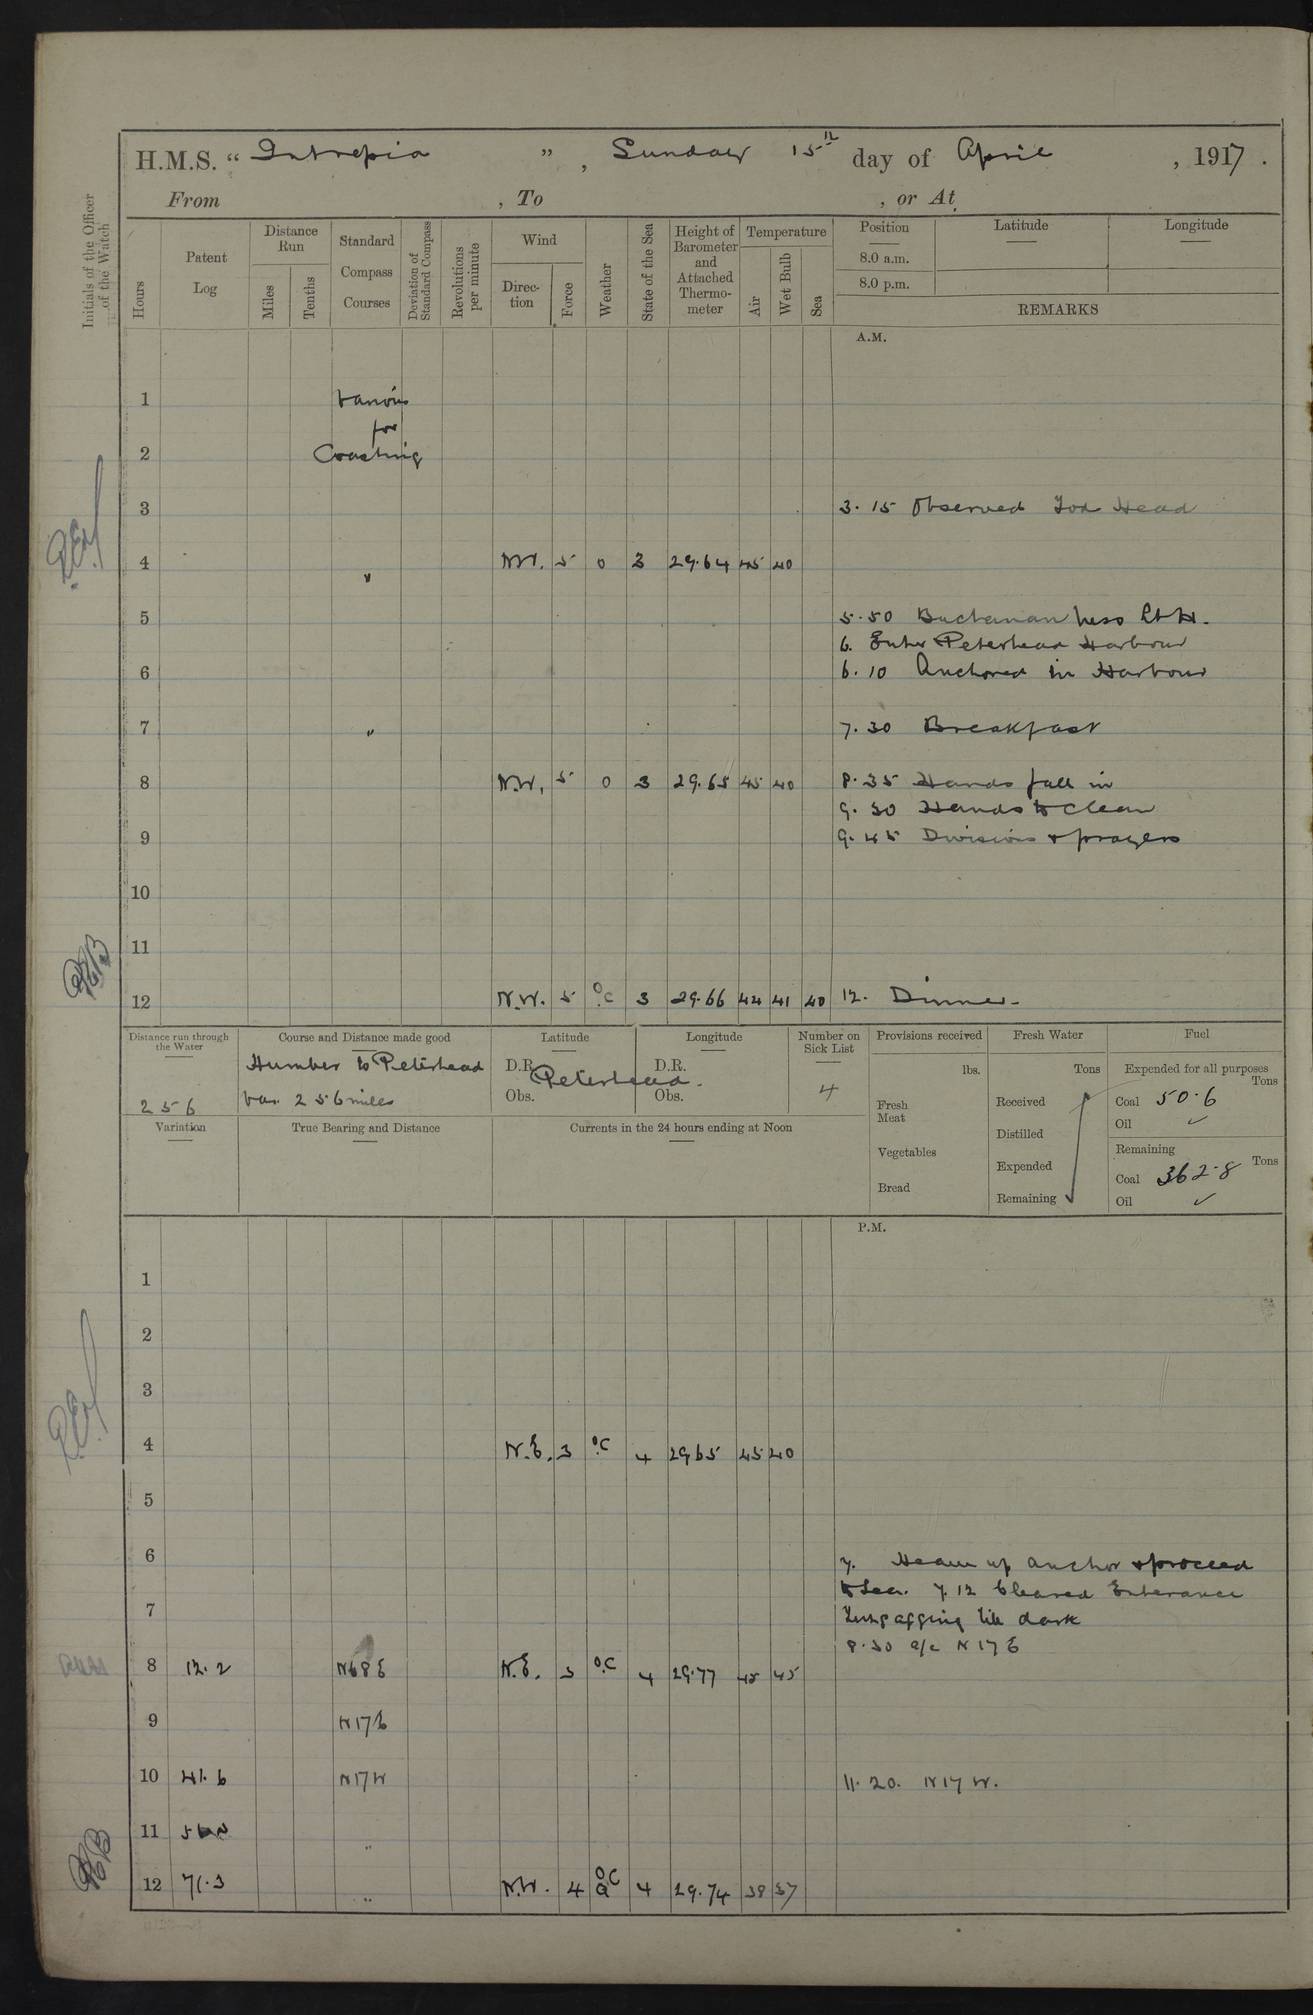 H.M.S. " Intrepid ", Sunday 15th day of April, 1917.
From , To , or At
Initials of the Officer of the Watch
Hours
Patent Log
Distance Run
Miles
Tenths
Standard Compass Courses
Deviation of Standard Compass
Revolutions per minute
Wind
Direction
Force
Weather
State of the Sea
Height of Barometer and Attached Thermometer
Temperature
Air
Wet Bulb
Sea
Position
8.0 a.m.
8.0 p.m.
Latitude
Longitude
REMARKS
A.M.
1 Various
for
2 Coasting
3 3.15 Observed Tod Head
4 " N.W. 5 o 3 29.64 45 40
5 5.50 Buchanan Ness Lt H.
6. Enter Peterhead Harbour
6 6.10 Anchored in Harbour
7 " 7.30 Breakfast
8 N.W. 5 o 3 29.65 45 40 8.35 Hands fall in
9.30 Hands to Clean
9 9.45 Divisions & prayers
10
11
12 N.W. 5 o.c 3 29.66 44 41 40 12. Dinner.
Distance run through the Water
256
Course and Distance made good
Humber to Peterhead
256 miles
Latitude
D.R.
Obs.
Peterhead.
Longitude
D.R.
Obs.
Number on Sick List
4
Provisions received
lbs.
Fresh Meat
Vegetables
Bread
Fresh Water
Tons
Received
Distilled
Expended
Remaining
Fuel
Expended for all purposes
Tons
Coal 50.6
Oil ✓
Remaining
Tons
Coal 362.8
Oil ✓
Variation
True Bearing and Distance
Currents in the 24 hours ending at Noon
P.M.
1
2
3
4 N.E. 3 o.c 4 2965 45 40
5
6
7. Heave up anchor & proceed
to Sea. 7.12 Cleared Enterance
7 till dark
8.30 a/c N17E
8 12.2 N68E N.E. 3 o.c 4 29.77 45 45
9 N17E
10 41.6 N17W 11.20. N17W.
11 "
12 71.3 " N.W. 4 o.c q 4 29.74 38 37